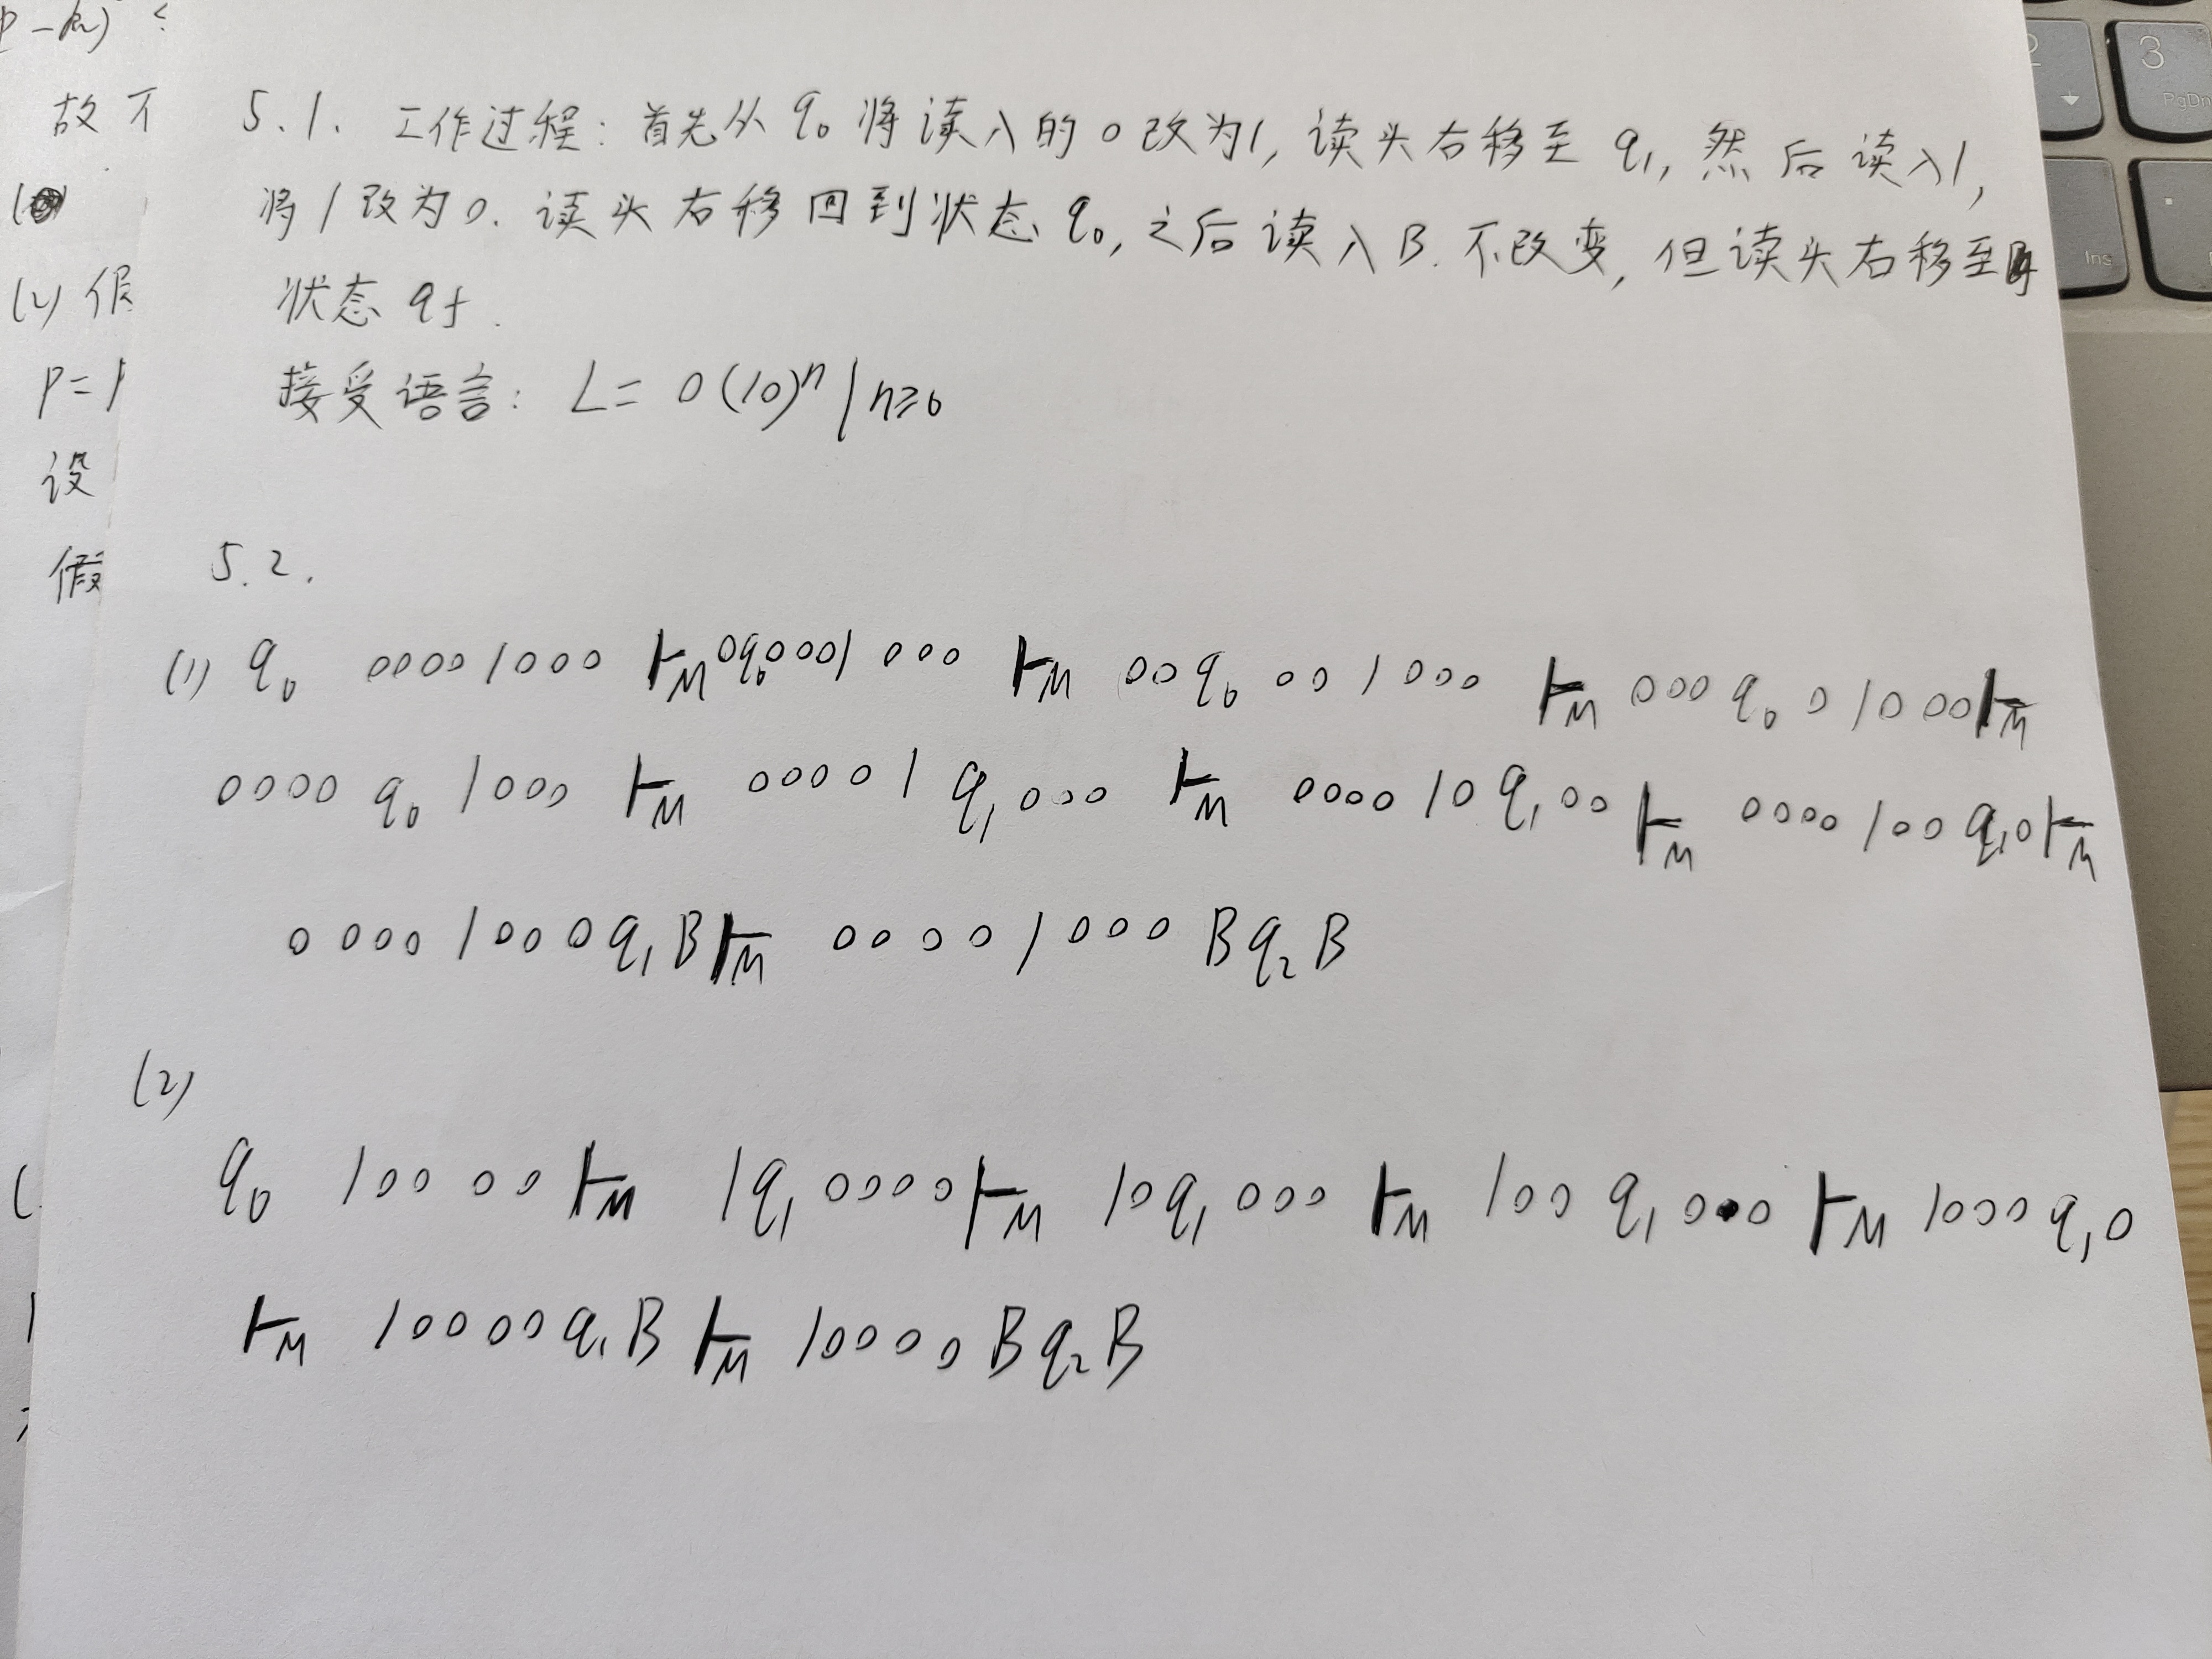 5.1. 工作过程: 首先从 q₀ 将读入的 0 改为1, 读头右移至 q₁, 然后读入1,
将1改为0. 读头右移回到状态 q₀, 之后读入 B. 不改变, 但读头右移至
状态 qf.
接受语言: L = 0(10)ⁿ | n≥0
5.2.
(1) q₀ 00001000 ⊢M 0q₀0001000 ⊢M 00q₀001000 ⊢M 000q₀01000 ⊢M
0000q₀1000 ⊢M 00001q₁000 ⊢M 000010q₁00 ⊢M 0000100q₁0 ⊢M
00001000q₁B ⊢M 00001000Bq₂B
(2)
q₀ 10000 ⊢M 1q₁0000 ⊢M 10q₁000 ⊢M 100q₁00 ⊢M 1000q₁0
⊢M 10000q₁B ⊢M 10000Bq₂B
故不
(2) 假
p=
设
假
2
3
PgDn
Ins